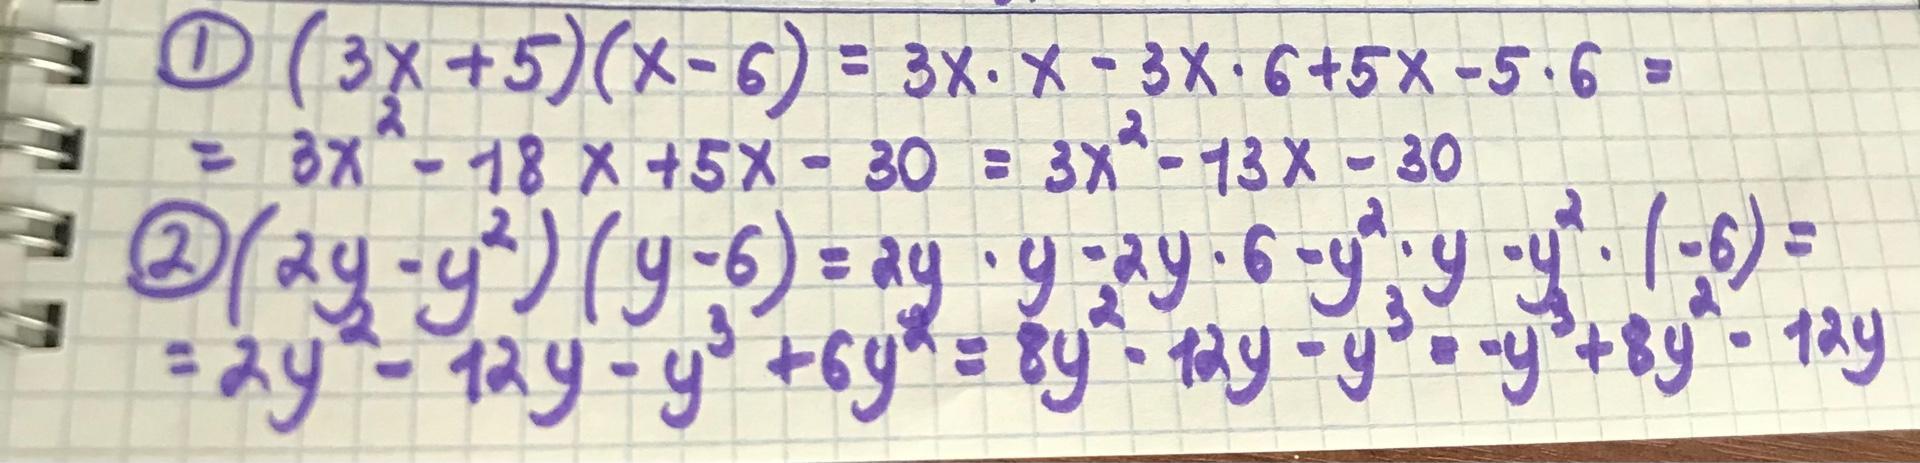 ① (3x+5)(x-6) = 3x·x - 3x·6+5x-5·6 =
= 3x² - 18x+5x - 30 = 3x² - 13x - 30
② (2y-y²)(y-6) = 2y·y-2y·6-y²·y-y²·(-6) =
= 2y² - 12y - y³ + 6y² = 8y² - 12y - y³ = -y³+8y² - 12y